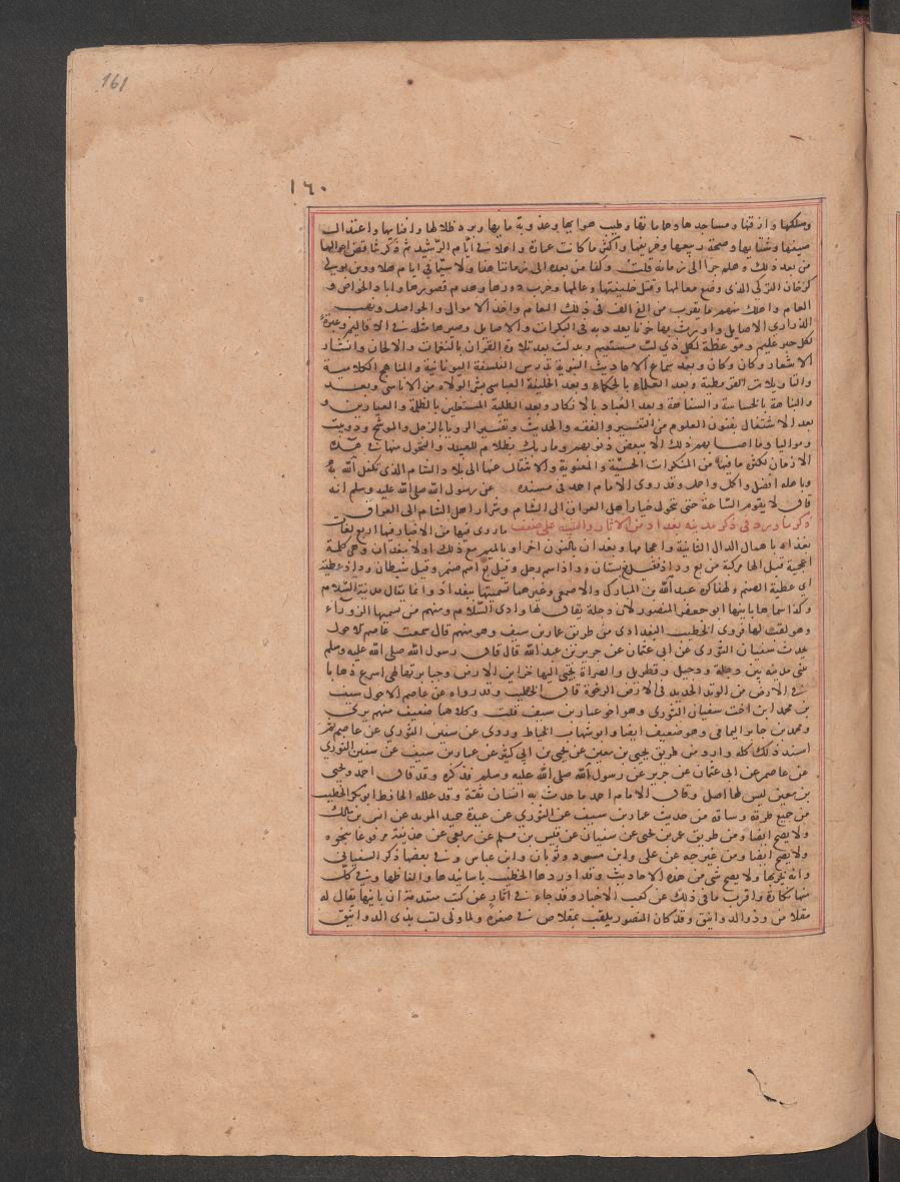 161
١٦٠
وسككها وازقتها ومساجدها وحماماتها وطيب هوايها وعذوبة مايها وبرد ظلالها وافيايها واعتدال
صيفها وشتايها وصحة ربيعها وخريفها واكثر ما كانت عمارة واهلا في ايام الرشيد ثم ذكر تناقص احوالها
من بعد ذلك وهلم جرا الى زمانه قلت وكذا من بعده الى زماننا هذا ولا سيما في ايام هلاوون بن تولى
ابن جنكزخان التركي الذي وضع معالمها وقتل خليفتها وعالمها وخرب دورها وهدم قصورها واباد الخواص و
العوام واهلك منهم ما يقرب من الف الف في ذلك العام واخذ الاموال والحواصل ونهب
الذراري الاصايل واورث بها حزنا يعدد به في البكرات والاصايل وصيرها مثلة في الاقاليم وعبرة
لكل جبار عليم وموعظة لكل ذي لب مستقيم وبدلت بعد تلاوة القران بالنغمات والالحان وانشاد
الاشعار وكان وكان وبعد سماع الاحاديث النبوية بدرس الفلسفة اليونانية والمناهج الكلامية
والتاويلات القرمطية وبعد العلماء بالحكماء وبعد الخليفة العباسي بشر الولاه من الاناسي وبعد
والنباهة بالخساسة والسفاهة وبعد العباد بالانكار وبعد الطلبة المشتغلين بالظلمة والعيارين و
بعد الاشتغال بفنون العلوم من التفسير والفقه والحديث وتعبير الرويا بالزجل والموشح ودوبيت
ومواليا وما اصابهم ذلك الا ببعض ذنوبهم وما ربك بظلام للعبيد والتحول منها في هذه
الازمان لكثرة ما فيها من المنكرات الحسية والمعنوية والانتقال عنها الى بلاد الشام الذي تكفل الله به
وباهله افضل واكمل واجمل وقد روى الامام احمد في مسنده عن رسول الله صلى الله عليه وسلم انه
قال لا يقوم الساعة حتى يتحول خيار اهل العراق الى الشام وشرار اهل الشام الى العراق
ذكر ما ورد في ذكر مدينة بغداد من الاثار والتنبيه على ضعف ما روي فيها من الاخبار فيها اربع لغات
بغداد باهمال الدال الثانية واعجامها وبغدان بالنون اخرا وبالميم مع ذلك اولا مغدان وهي كلمة
اعجمية قيل انها مركبة من بغ وداد فقيل بغ بستان وداد اسم رجل وقيل بغ اسم صنم وقيل شيطان وداد عطية
اي عطية الصنم ولهذا كره عبد الله بن المبارك والاصمعي وغيرهما تسميتها ببغداد وانما يقال مدينة السلام
وكذا اسماها بانيها ابو جعفر المنصور لان دجلة يقال لها وادي السلام ومنهم من يسميها الزوراء
وهو لقب لها فروى الخطيب البغدادي من طريق عمار بن سيف وهو متهم قال سمعت عاصم الاحول
يحدث سفيان الثوري عن ابي عثمان عن جرير بن عبد الله قال قال رسول الله صلى الله عليه وسلم
تبنى مدينة بين دجلة ودجيل وقطربل والصراة يجبى اليها خزاين الارض وجبابرتها لهي اسرع ذهابا
في الارض من الوتد الحديد في الارض الرخوة قال الخطيب وقد رواه عن عاصم الاحول سيف
بن محمد ابن اخت سفيان الثوري وهو اخو عمار بن سيف قلت وكلاهما ضعيف متهم يرمى
ومحمد بن جابر اليمامي وهو ضعيف ايضا وابو شهاب الحناط وروي عن سفين الثوري عن عاصم ثم
اسند ذلك كله واورد من طريق يحيى بن معين عن يحيى بن ابي كثير عن عمار بن سيف عن سفين الثوري
عن عاصم عن ابي عثمان عن جرير عن رسول الله صلى الله عليه وسلم فذكره وقد قال احمد ويحيى
بن معين ليس لها اصل وقال الامام احمد ما حدث به انسان ثقة وقد علله الحافظ ابو بكر الخطيب
من جميع طرقه وساقه من حديث عمار بن سيف عن الثوري عن عبيدة حميد الطويل عن انس بن مالك
ولا يصح ايضا ومن طريق عمر بن يحيى عن سفيان عن قيس بن مسلم عن ربعي عن حذيفة مرفوعا بنحوه
ولا يصح ايضا ومن غير وجه عن علي وابن مسعود وثوبان وابن عباس وفي بعضها ذكر السفياني
وانه يخربها ولا يصح شي من هذه الاحاديث وقد اوردها الخطيب باسانيدها والفاظها وفي كل
منها نكارة واقرب ما في ذلك عن كعب الاحبار وقد جاء في اثار عن كتب متقدمة ان بانيها يقال له
مقلاص وذو الدوانيق وقد كان المنصور يلقب بمقلاص في صغره ولما ولي لقب بذي الدوانيق